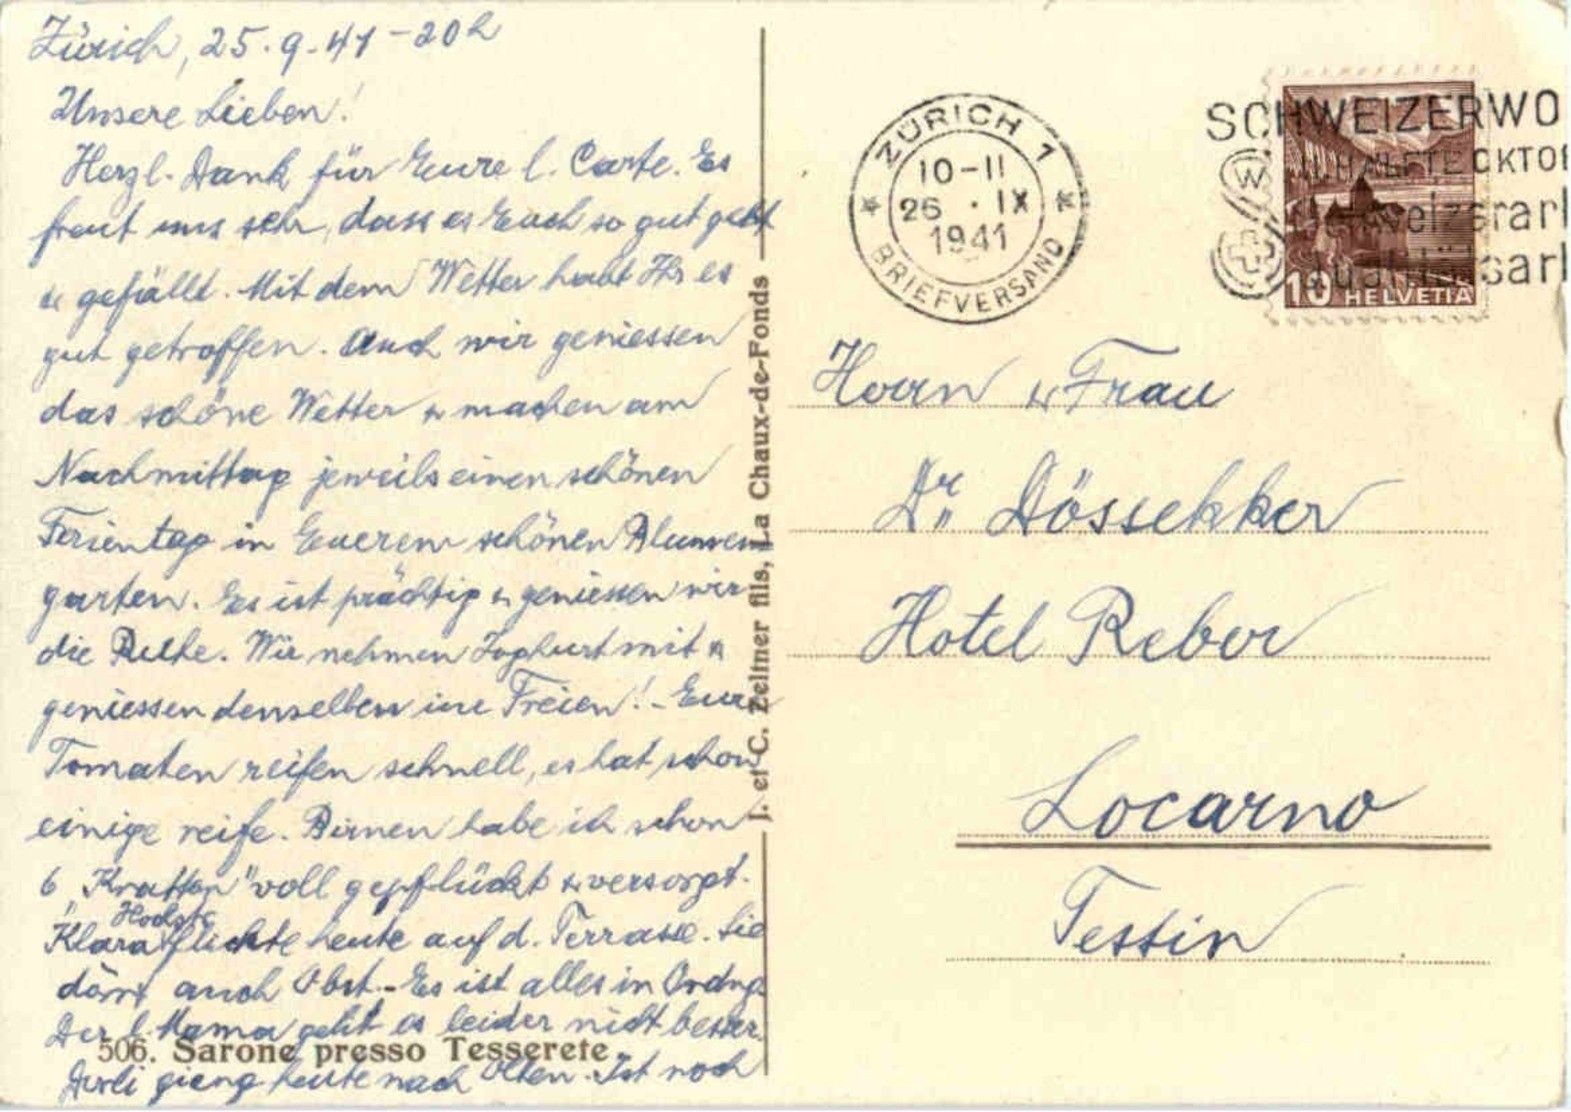 Zürich, 25.9.41 - 20h
Unsere Lieben!
Herzl. Dank für Eure l. Carte. Es
freut uns sehr, dass es Euch so gut geht
u. gefällt. Mit dem Wetter habt Ihr es
gut getroffen. Auch wir geniessen
das schöne Wetter u machen am
Nachmittag jeweils einen schönen
Ferientag in Euerem schönen Blumen
garten. Es ist prächtig u geniessen wir
die Ruhe. Wir nehmen Joghurt mit u
geniessen denselben im Freien! - Eure
Tomaten reifen schnell, es hat schon
einige reife. Birnen habe ich schon
6 „Kratten" voll gepflückt u versorgt.
Klara flickte heute auf d. Terrasse. Sie
dörrt auch Obst. - Es ist alles in Ordng.
Der l. Mama geht es leider nicht besser.
gieng heute nach Olten. Ist noch
506. Sarone presso Tesserete
J. et C. Zeltner fils, La Chaux-de-Fonds
ZÜRICH 1
10-11
26 · IX
1941
BRIEFVERSAND
SCHWEIZERWO
HÄLFTE OKTOB
W
10 HELVETIA
Herrn u Frau
Dr. Dössekker
Hotel Reber
Locarno
Tessin